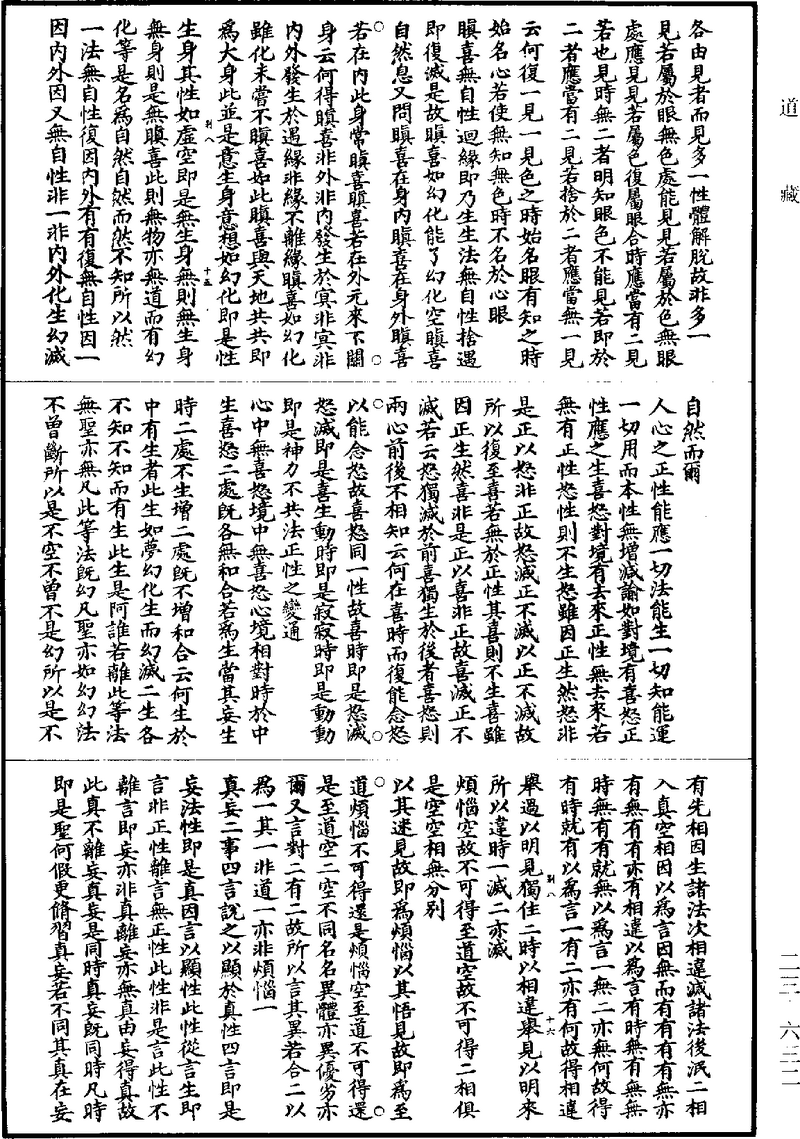 道藏
各由見者而見多一性體解脫故非多一
見若屬於眼無色處能見見若屬於色無眼
處應見見若屬色復屬眼合時應當有二見
若也見時無二者明知眼色不能見若即於
二者應當有二見若捨於二者應當無一見
云何復一見一見色之時始名眼有知之時
始名心若使無知無色時不名於心眼
瞋喜無自性迴緣即乃生生法無自性捨遇
即復滅是故瞋喜如幻化能了幻化空瞋喜
自然息又問瞋喜在身內瞋喜在身外瞋喜
若在內此身常瞋喜瞋喜若在外元來不關
身云何得瞋喜非外非內發生於冥非冥非
內外發生於遇緣非緣不離緣瞋喜如幻化
雖化未嘗不瞋喜如此瞋喜與天地共共即
為大身此並是意生身意想如幻化即是性
別八 十五
生身其性如虛空即是無生身無則無生身
無身則是無瞋喜此則無物亦無道而有幻
化等是名為自然自然而然不知所以然
一法無自性復因內外有有復無自性因一
因內外因又無自性非一非內外化生幻滅
自然而爾
人心之正性能應一切法能生一切知能運
一切用而本性無增減諭如對境有喜怒正
性應之生喜怒對境有去來正性無去來若
無有正性怒性則不生怒雖因正生然怒非
是正以怒非正故怒滅正不滅以正不滅故
所以復至喜若無於正性其喜則不生喜雖
因正生然喜非是正以喜非正故喜滅正不
滅若云怒獨滅於前喜獨生於後者喜怒則
兩心前後不相知云何在喜時而復能念怒
以能念怒故喜怒同一性故喜時即是怒滅
怒滅即是喜生動時即是寂寂時即是動動
即是神力不共法正性之變通
心中無喜怒境中無喜怒心境相對時於中
生喜怒二處既各無和合若為生當其妄生
時二處不生增二處既不增和合云何生於
中有生者此生如夢幻化生而幻滅二生各
不知不知而有生此生是阿誰若離此等法
無聖亦無凡此等法既幻凡聖亦如幻幻法
不曾斷所以是不空不曾不是幻所以是不
有先相因生諸法次相違滅諸法後泯二相
入真空相因以為言因無而有有有有無亦
有無有有亦有相違以為言有時無有無無
時無有有就無以為言一無二亦無何故得
有時就有以為言一有二亦有何故得相違
別八 十六
舉過以明見獨住二時以相違舉見以明來
所以違時一滅二亦滅
煩惱空故不可得至道空故不可得二相俱
是空空相無分別
以其迷見故即為煩惱以其悟見故即為至
道煩惱不可得還是煩惱空至道不可得還
是至道空二空不同名名異體亦異優劣亦
爾又言對二有二故所以言其異若合二以
為一其一非道一亦非煩惱一
真妄二事四言說之以顯於真性四言即是
妄法性即是真因言以顯性此性從言生即
言非正性離言無正性此性非是言此性不
離言即妄亦非真離妄亦無真由妄得真故
此真不離妄真妄是同時真妄既同時凡時
即是聖何假更脩習真妄若不同其真在妄
二三·六三二